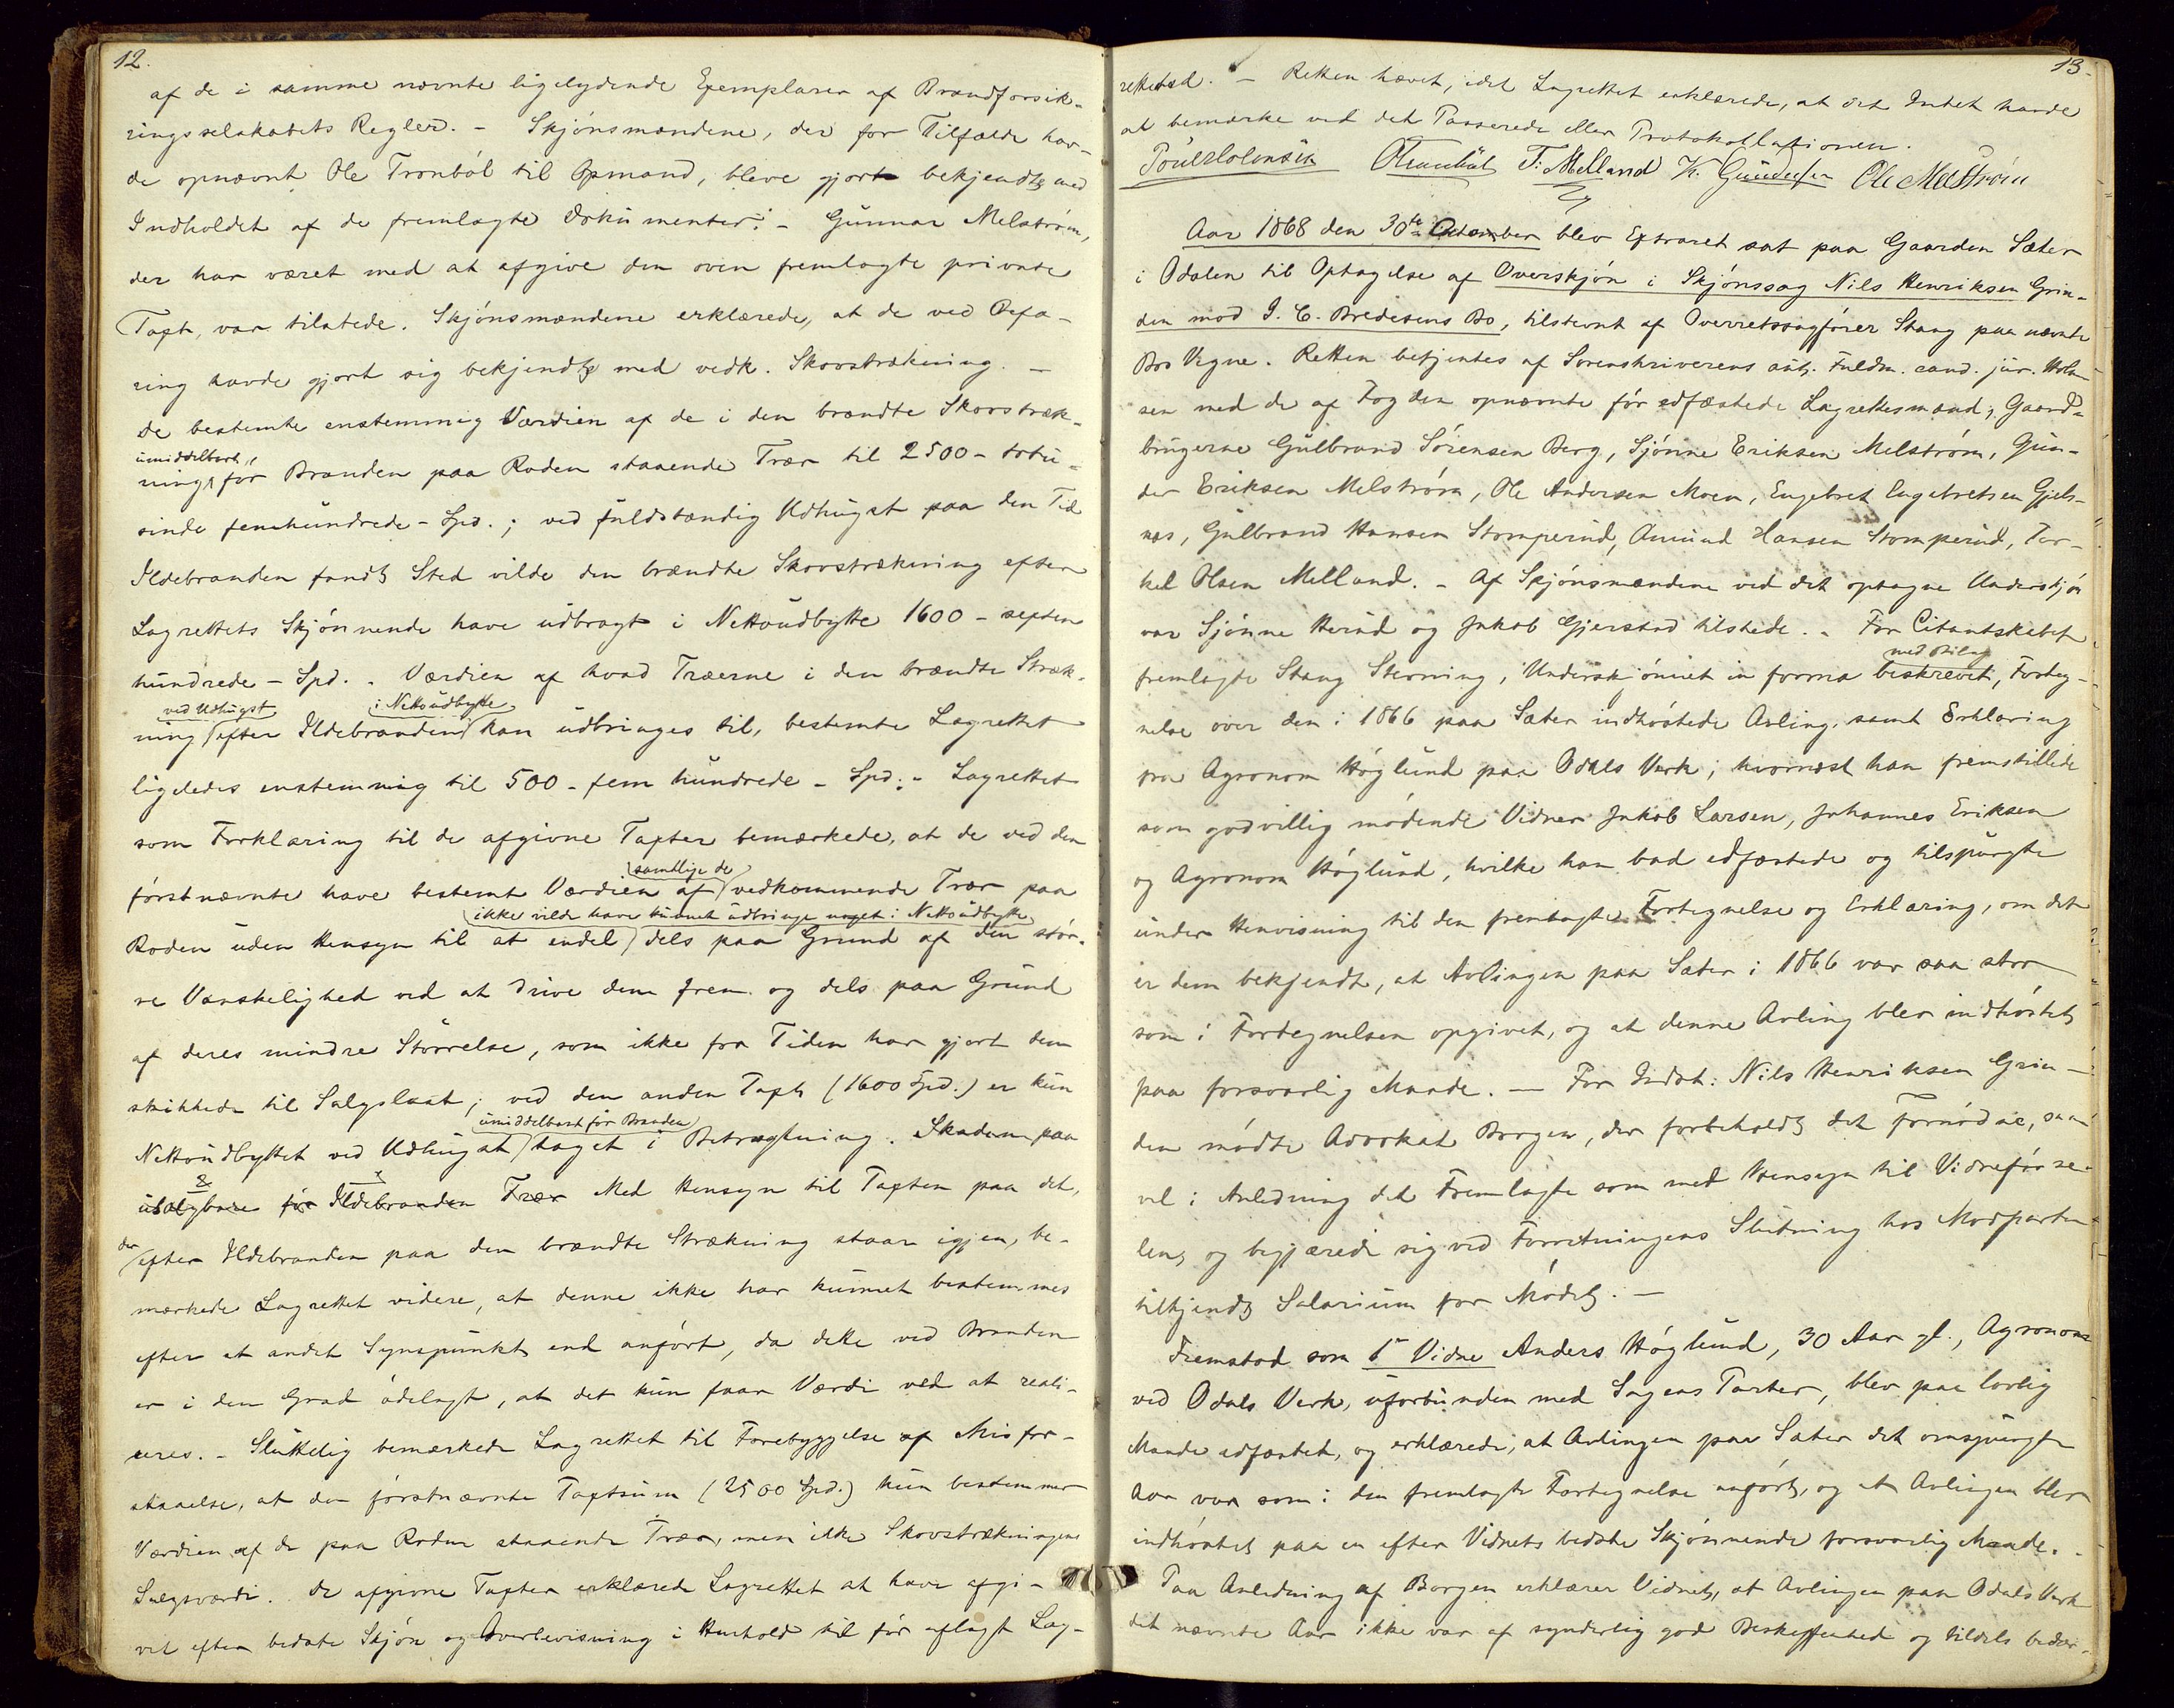 12.
af de i samme nævnte ligelydende Exemplarer af Brandforsik-
ringsselskabets Regler. - Skjönsmændene, der for Tilfælde hav-
de opnævnt Ole Tronböl til Opmand, bleve gjort bekjendt med
Indholdet af de fremlagte Dokumenter. - Gunnar Melström,
der har været med at afgive den oven fremlagte private
Taxt, var tilstede. Skjönsmændene erklærede, at de ved Befa-
ring havde gjort sig bekjendt med vedk. Skovstrækning. -
De bestemte enstemmig Værdien af de i den brændte Skovstræk-
umiddelbart
ning för Branden paa Roden staaende Trær til 2500 - totu-
sinde femhundrede - Spd.; ved fuldstændig Udhugst paa den Tid
Ildebranden fandt Sted vilde den brændte Skovstrækning efter
Lagrettets Skjönnende have udbragt i Nettoudbytte 1600 - sexten
hundrede - Spd. - Værdien af hvad Træerne i den brændte Stræk-
ved Udhugst i Nettoudbytte
ning efter Ildebranden kan udbringes til, bestemte Lagrettet
ligeledes enstemmig til 500 - fem hundrede - Spd. - Lagrettet
som Forklaring til de afgivne Taxter bemærkede, at de ved den
samtlige de
förstnævnte have bestemt Værdien af vedkommende Trær paa
ikke vilde have kunnet udbringe noget i Nettoudbytte
Roden uden Hensyn til at endel dels paa Grund af den stör-
re Vanskelighed ved at drive dem frem og dels paa Grund
af deres mindre Störrelse, som ikke for Tiden har gjort dem
skikkede til Salgslast; ved den anden Taxt (1600 Spd.) er kun
umiddelbart för Branden
Nettoudbyttet ved Udhugst taget i Betragtning. Skaden paa
usalgbare för Ildebranden Trær Med Hensyn til Taxten paa det,
der
efter Ildebranden paa den brændte Strækning staar igjen, be-
mærkede Lagrettet videre, at denne ikke har kunnet bestemmes
efter et andet Synspunkt end anfört, da dette ved Branden
er i den Grad ödelagt, at det kun faar Værdi ved at reali-
seres. - Sluttelig bemærkede Lagrettet til Forebyggelse af Misfor-
staaelse, at den förstnævnte Taxtsum (2500 Spd.) kun bestemmer
Værdien af de paa Roden staaende Trær, men ikke Skovstrækningens
Salgsværdi. De afgivne Taxter erklærede Lagrettet at have afgi-
vet efter bedste Skjön og Overbevisning i Henhold til för aflagt Lag-
13.
rettesed. - Retten hævet, idet Lagrettet erklærede, at det Intet havde
at bemærke ved det Passerede eller Protokollationen.
OTronböl T. Melland K. Gundersen Ole Melström
Aar 1868 den 30te October blev Extraret sat paa Gaarden Sæter
i Odalen til Optagelse af Overskjön i Skjönssag Nils Henriksen Grin-
den mod J. C. Bredesens Bo, tilstevnt af Overretssagförer Stang paa nævnte
Bos Vegne. Retten betjentes af Sorenskriverens aut. Fuldm. cand. jur. Holm-
sen med de af Fogden opnævnte för edfæstede Lagrettesmænd, Gaard-
brugerne Gulbrand Sörensen Berg, Sjönne Eriksen Melström, Gun-
der Eriksen Melström, Ole Andersen Moen, Engebret Engebretsen Gjels-
næs, Gulbrand Hansen Stomperud, Amund Hansen Stomperud, Tor-
kel Olsen Melland. - Af Skjönsmændene ved det optagne Underskjön
var Sjönne Herud og Jakob Gjerstad tilstede. - For Citantskabet
med Bilag
fremlagte Stang Stevning, Underskjönnet in forma beskrevet, Forteg-
nelse over den i 1866 paa Sæter indhöstede Avling, samt Erklæring
fra Agronom Höglund paa Odals Verk; hvornæst han fremstillede
som godvillig mödende Vidner Jakob Larsen, Johannes Eriksen
og Agronom Höglund, hvilke han bad edfæstede og tilspurgte
under Henvisning til den fremlagte Fortegnelse og Erklæring, om det
er dem bekjendt, at Avlingen paa Sæter i 1866 var saa stor
som i Fortegnelsen opgivet, og at denne Avling blev indhöstet
paa forsvarlig Maade. - For Indst: Nils Henriksen Grin-
den mödte Advokat Borgen, der forbeholdt det Fornödne, saa-
vel i Anledning det Fremlagte som med Hensyn til Vidneförse-
len, og begjærede sig ved Forretningens Slutning hos Modparten
tilkjendt Salarium for Mödet. -
Fremstod som 1ste Vidne Anders Höglund, 30 Aar gl., Agronom
ved Odals Verk, uforbunden med Sagens Parter, blev paa lovlig
Maade edfæstet, og erklærede, at Avlingen paa Sæter det omspurgte
Aar var som i den fremlagte Fortegnelse anfört, og at Avlingen blev
indhöstet paa en efter Vidnets bedste Skjönnende forsvarlig Maade. -
Paa Anledning af Borgen erklærer Vidnet, at Avlingen paa Odals Verk
det nævnte Aar ikke var af synderlig god Beskaffenhed og tildels bedær-